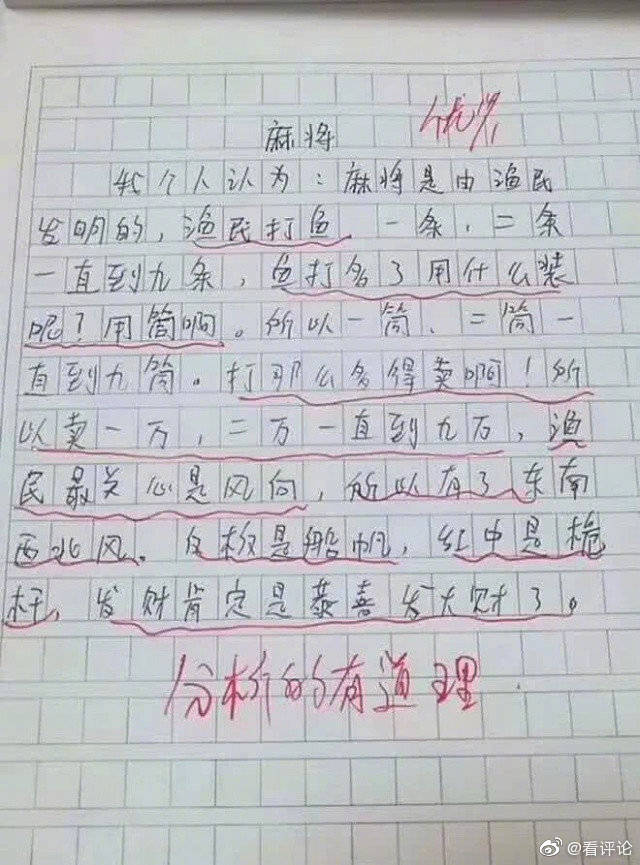 麻将
优
我个人认为：麻将是由渔民
发明的，渔民打鱼，一条，二条
一直到九条，鱼打多了用什么装
呢？用筒啊。所以一筒、二筒一
直到九筒。打那么多得卖啊！所
以卖一万，二万一直到九万，渔
民最关心是风向，所以有了东南
西北风。白板是船帆，红中是桅
杆，发财肯定是恭喜发大财了。
分析的有道理
@看评论